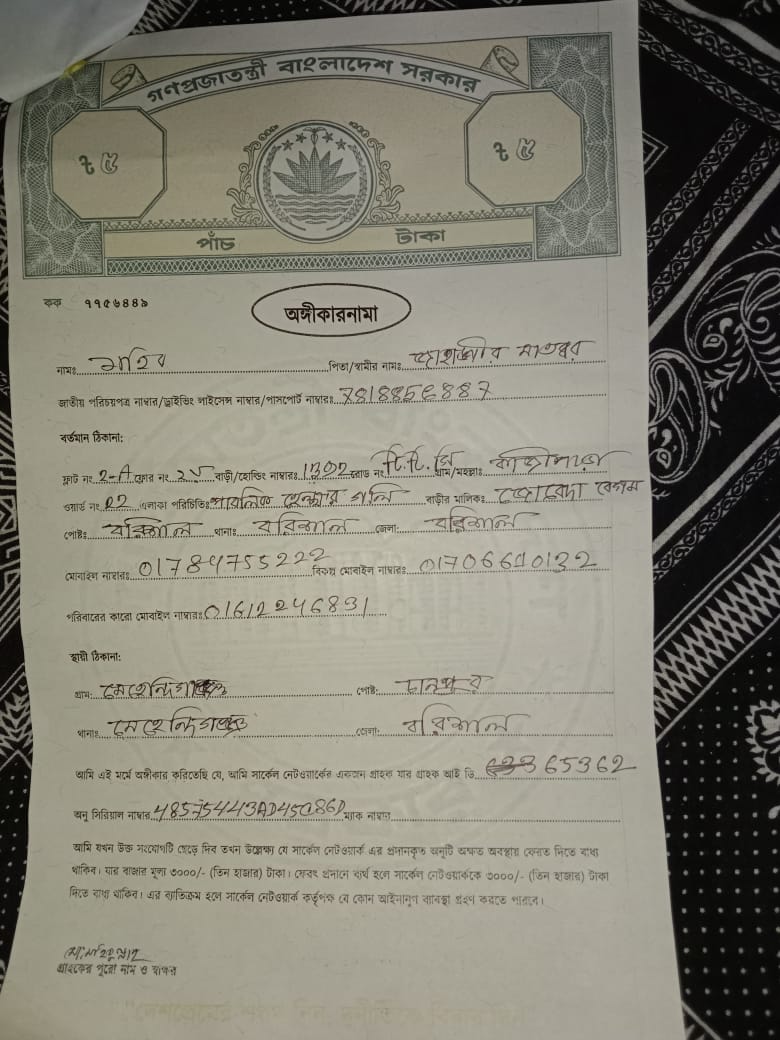 গণপ্রজাতন্ত্রী বাংলাদেশ সরকার
৳ ৫ ৳ ৫
পাঁচ টাকা
কক ১১৫৬৪৪৯
অঙ্গীকারনামা
নামঃ পিতা/স্বামীর নামঃ জাহাঙ্গীর মাতব্বর
জাতীয় পরিচয়পত্র নাম্বার/ড্রাইভিং লাইসেন্স নাম্বার/পাসপোর্ট নাম্বারঃ
বর্তমান ঠিকানা:
ফ্লাট নং 2-A ফ্লোর নং বাড়ী/হোল্ডিং নাম্বারঃ 1302 রোড নং গ্রাম/মহল্লাঃ কাজীপাড়া
ওয়ার্ড নং 22 এলাকা পরিচিতিঃ পাবলিক হেলথের গলি বাড়ীর মালিকঃ বেগম
পোষ্টঃ বরিশাল থানাঃ বরিশাল জেলা: বরিশাল
মোবাইল নাম্বারঃ 01784755222 বিকল্প মোবাইল নাম্বারঃ 01706610132
পরিবারের কারো মোবাইল নাম্বারঃ 01612246831
স্থায়ী ঠিকানা:
গ্রাম: মেহেন্দিগঞ্জ পোষ্ট:
থানাঃ মেহেন্দিগঞ্জ জেলা: বরিশাল
আমি এই মর্মে অঙ্গীকার করিতেছি যে, আমি সার্কেল নেটওয়ার্কের একজন গ্রাহক যার গ্রাহক আই ডি 65362
অনু সিরিয়াল নাম্বার ম্যাক নাম্বার
আমি যখন উক্ত সংযোগটি ছেড়ে দিব তখন উল্লেক্ষ্য যে সার্কেল নেটওয়ার্ক এর প্রদানকৃত অনুটি অক্ষত অবস্থায় ফেরত দিতে বাধ্য
থাকিব। যার বাজার মূল্য ৩০০০/- (তিন হাজার) টাকা। ফেরৎ প্রদানে ব্যর্থ হলে সার্কেল নেটওয়ার্ককে ৩০০০/- (তিন হাজার) টাকা
দিতে বাধ্য থাকিব। এর ব্যতিক্রম হলে সার্কেল নেটওয়ার্ক কর্তৃপক্ষ যে কোন আইনানুগ ব্যাবস্থা গ্রহণ করতে পারবে।
গ্রাহকের পুরো নাম ও স্বাক্ষর